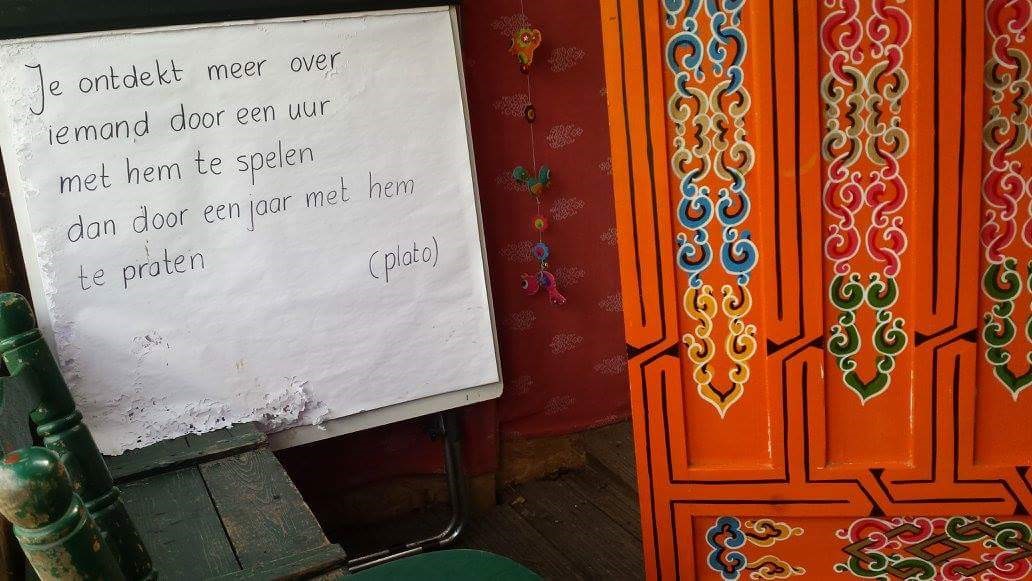 Je ontdekt meer over
iemand door een uur
met hem te spelen
dan door een jaar met hem
te praten (plato)